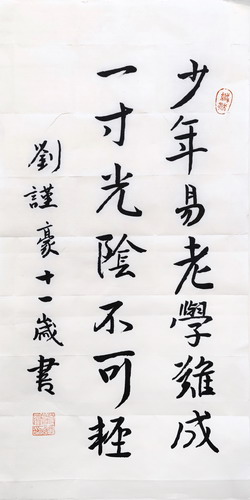 少年易老學難成
一寸光陰不可輕
劉謹豪十一歲書